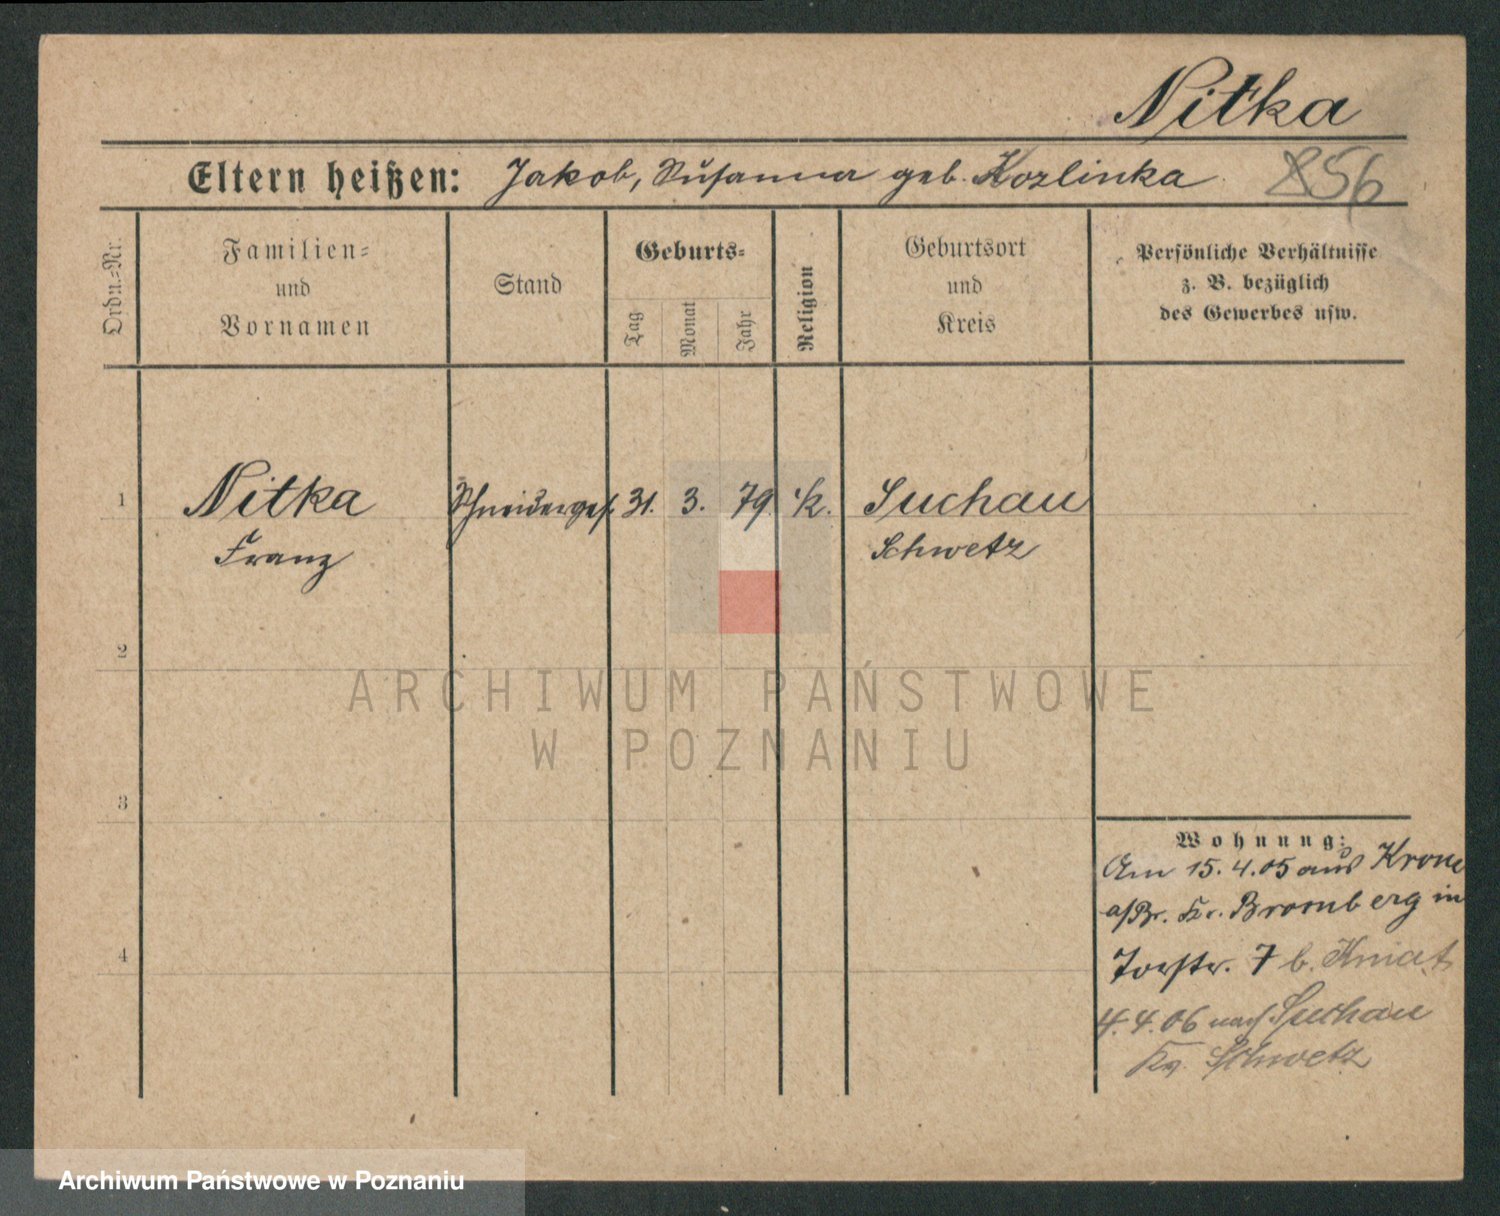 Nitka
Eltern heißen: Jakob, Susanna geb. Kozlinka
856
Ordn.-Nr.
Familien-
und
Vornamen
Stand
Geburts-
Tag
Monat
Jahr
Religion
Geburtsort
und
Kreis
Persönliche Verhältnisse
z. B. bezüglich
des Gewerbes usw.
1 Nitka Schneiderges. 31. 3. 79 k. Suchau
Franz Schwetz
2
ARCHIWUM PAŃSTWOWE
W POZNANIU
3
Wohnung:
Am 15.4.05 aus Krone
a/Br. Kr. Bromberg in
4
Torstr. 7 b. Kniat
4.4.06 nach Suchau
Kr. Schwetz
Archiwum Państwowe w Poznaniu